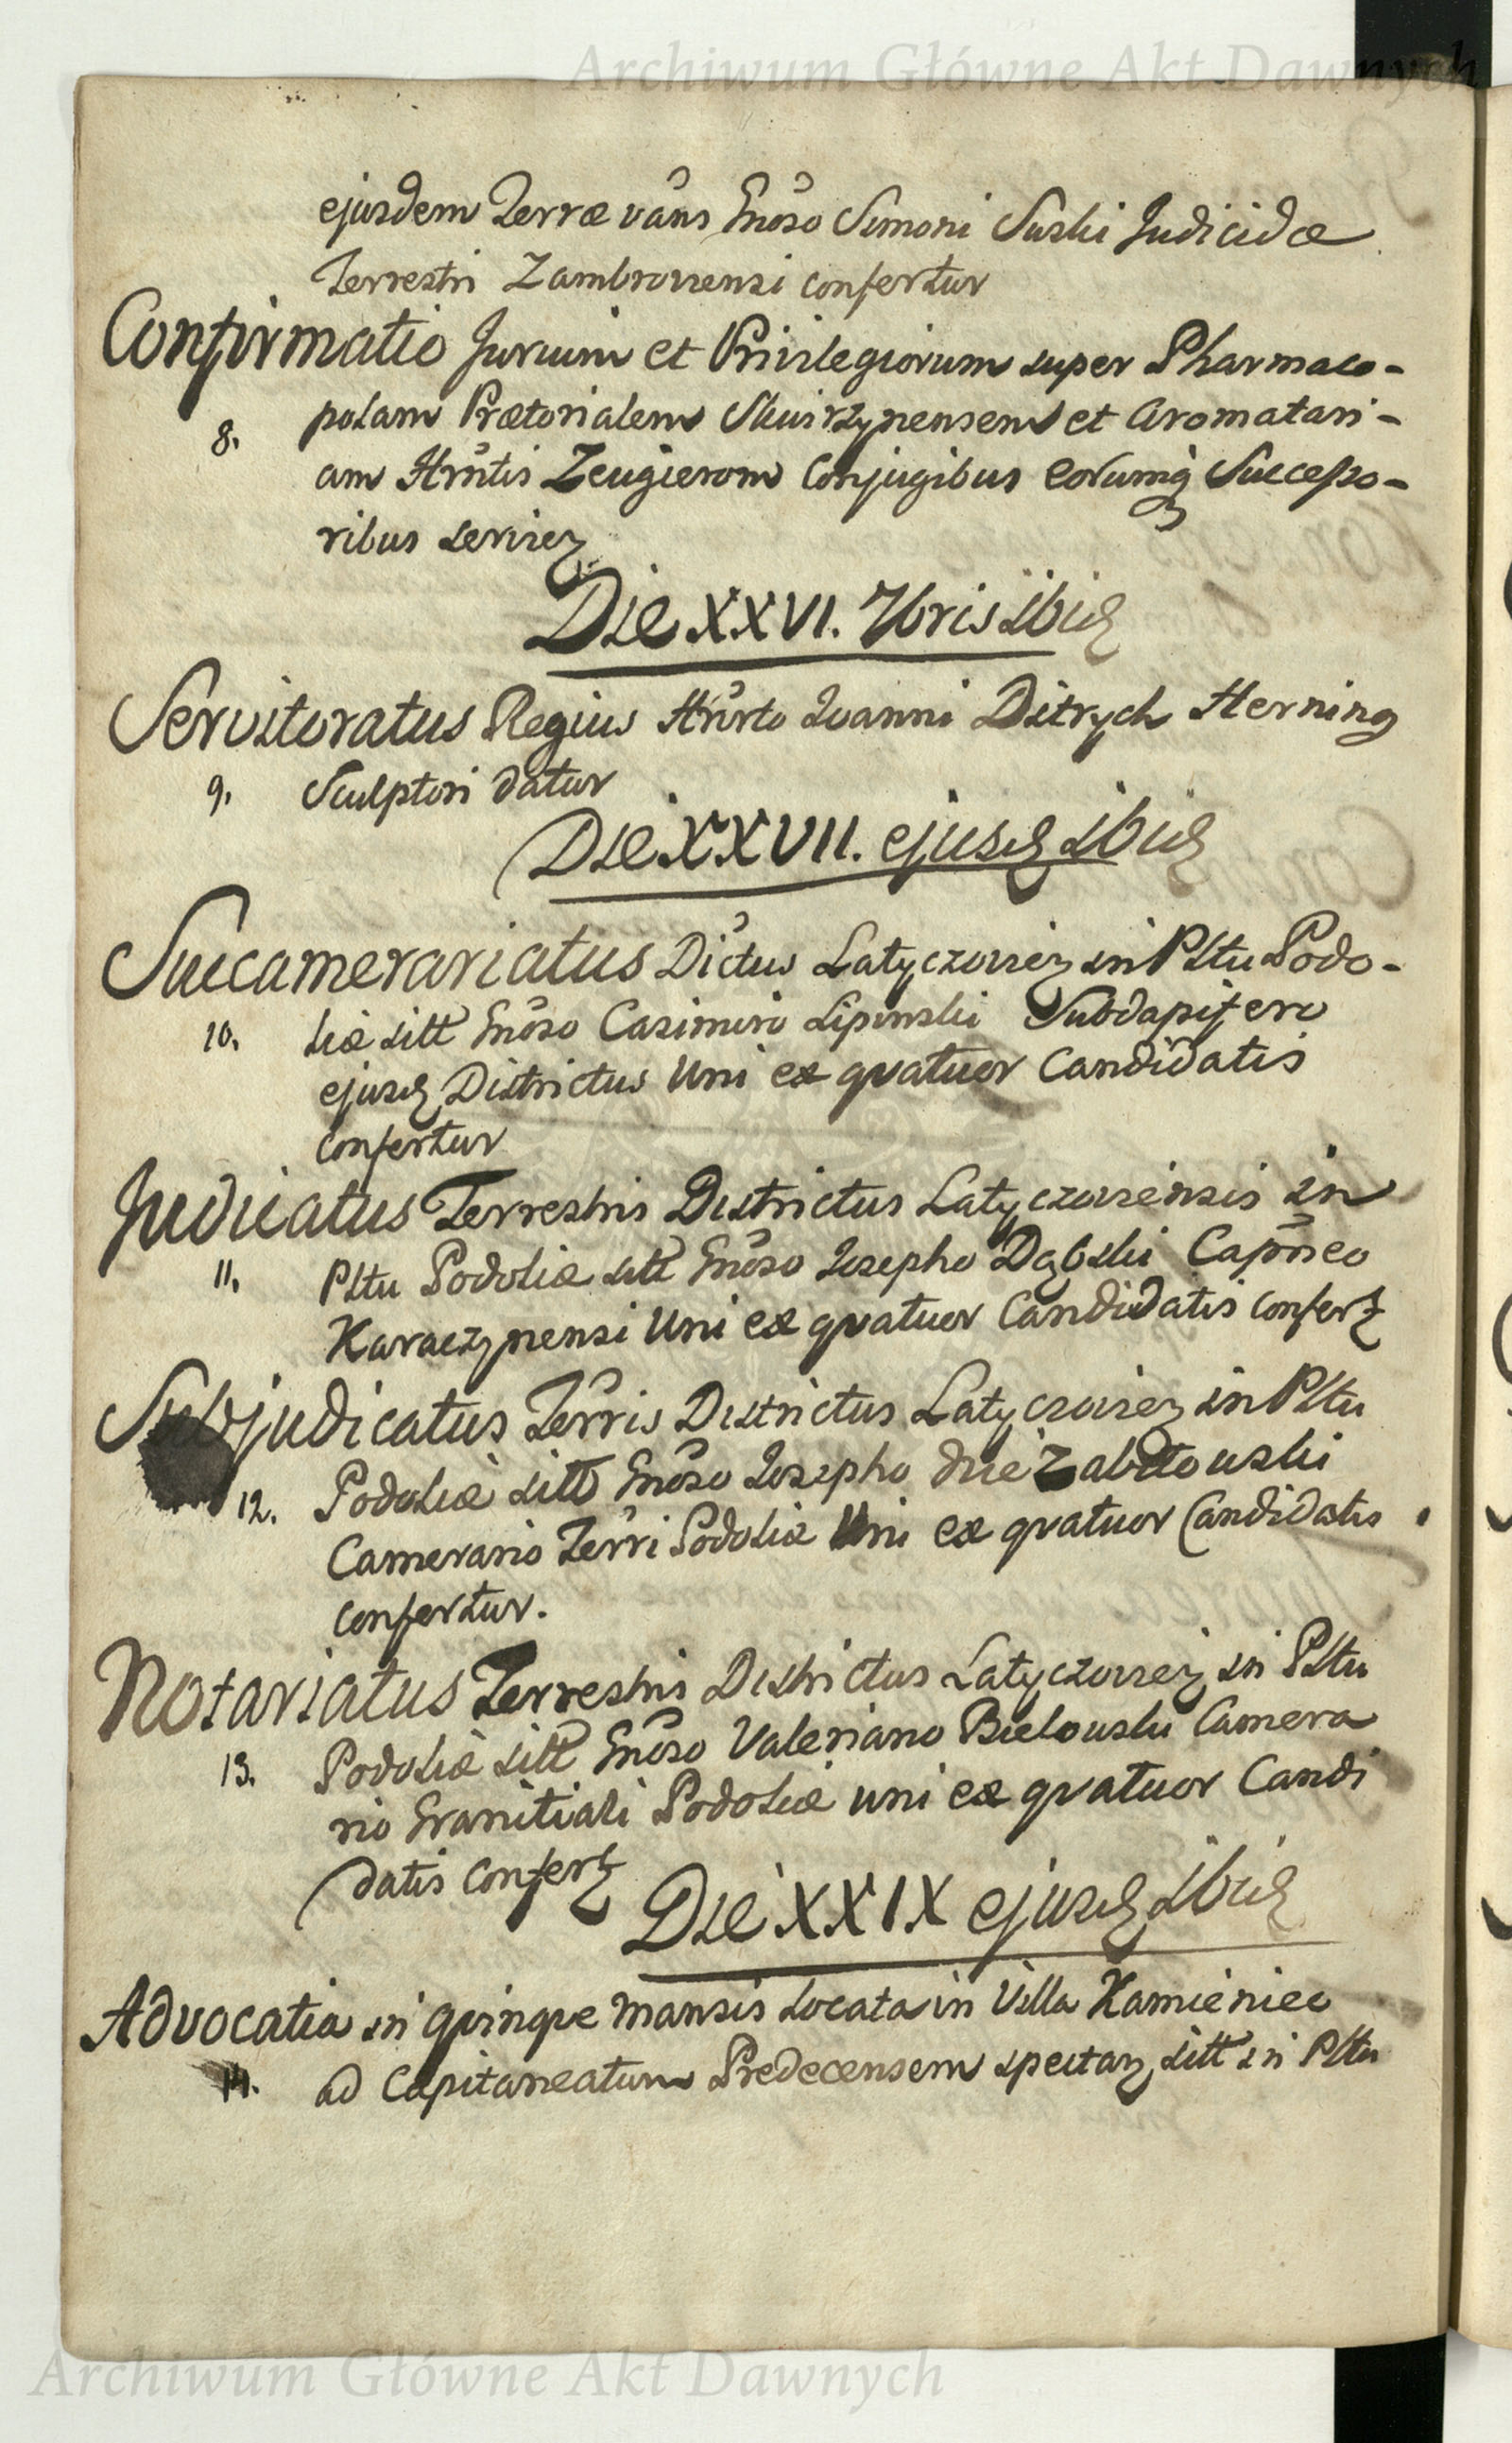 Archiwum Główne Akt Dawnych
ejusdem Terræ vans Gnoso Simoni Suski Judicidæ
Terrestri Zambroviensi confertur
Confirmatio Jurium et Privilegiorum super Pharmaco-
8. polam Prætorialem Skwirzynensem et Aromatari-
am Hrntis Zeugierom Conjugibus eorumq Successo-
ribus servien
Die XXVI. 7bris ibid
Servitoratus Regius Hnrto Joanni Ditrych Herning
9. Sculptori datur
Die XXVII. ejusd ibid
Succamerariatus Dictus Latyczovien in Pltu Podo-
10. liæ sitt Gnoso Casimiro Lipinski Subdapifero
ejusd Districtus Uni ex qvatuor Candidatis
confertur
Judicatus Terrestris Districtus Latyczoviensis in
11. Pltu Podoliæ sitt Gnoso Josepho Dąbski Capneo
Karaczynensi Uni ex qvatuor Candidatis confert
Subjudicatus Terris Districtus Latyczovien in Pltu
12. Podoliæ sitt Gnoso Josepho due Zabłtouski
Camerario Terri Podoliæ Uni ex qvatuor Candidatis
confertur.
Notariatus Terrestris Districtus Latyczovien in Pltu
13. Podoliæ sitt Gnoso Valeriano Bielouski Camera
rio Granitiali Podoliæ uni ex qvatuor Candi
datis confert
Die XXIX ejusd ibid
Advocatia in qvinqve mansis locata in Villa Kamieniec
14. ad Capitaneatum Predecensem spectan sitt in Pltu
Archiwum Główne Akt Dawnych